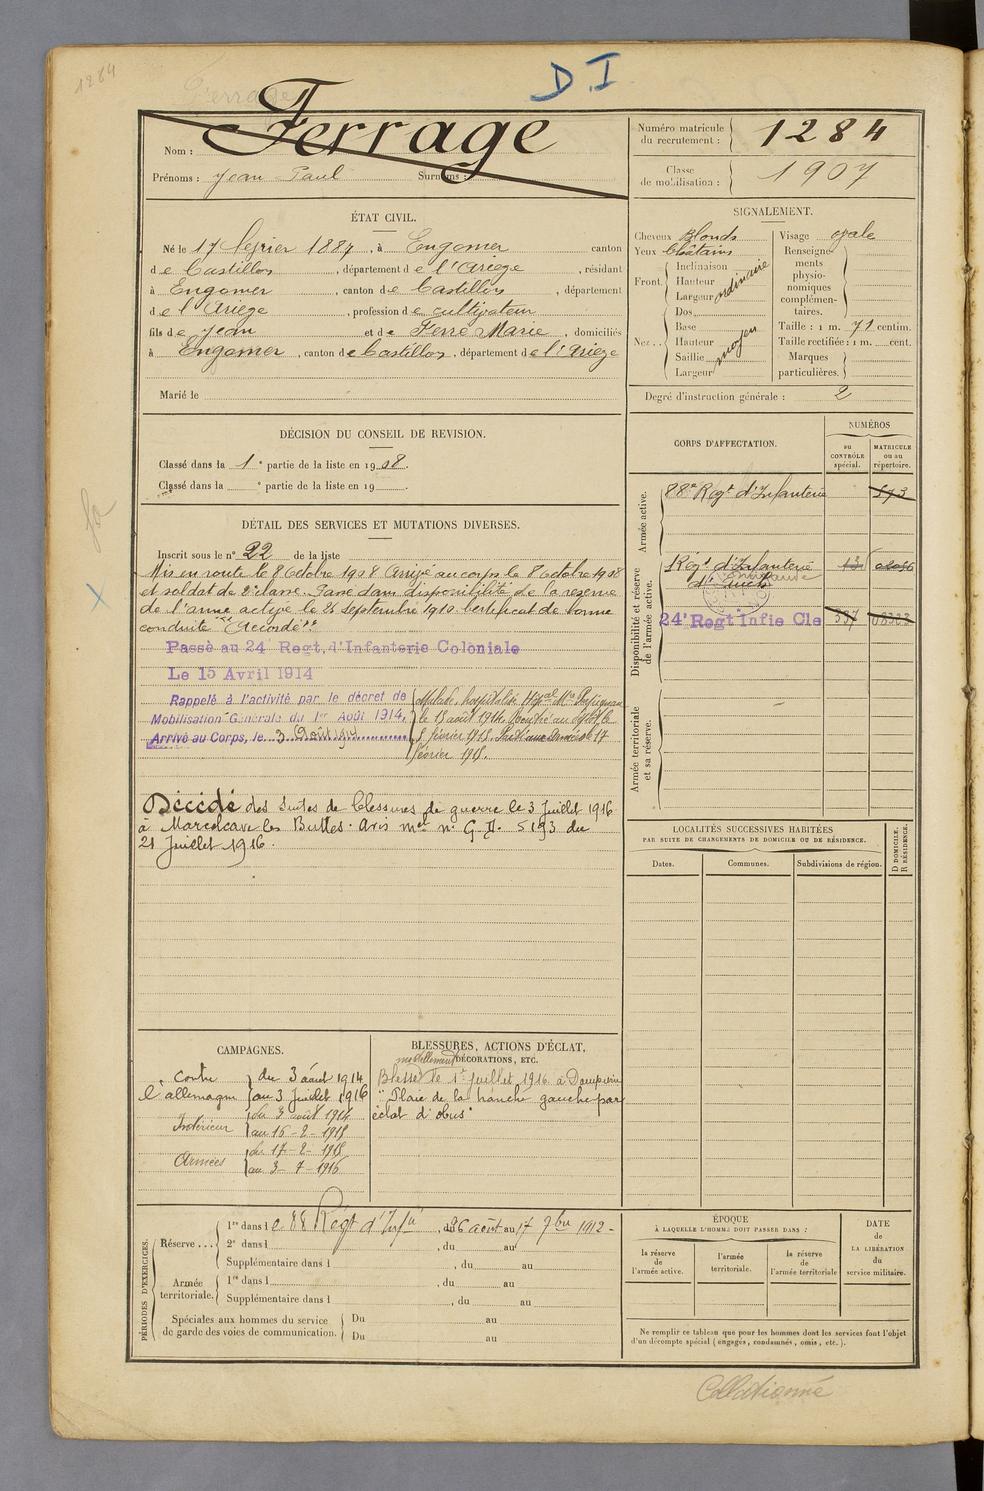 1284
D.I
Ferrage
Nom : Ferrage
Prénoms : Jean Paul Surnoms :
Numéro matricule du recrutement : 1284
Classe de mobilisation : 1907
ÉTAT CIVIL.
Né le 17 février 1887, à Engomer canton
de Castillon, département de l'Ariège, résidant
à Engomer, canton de Castillon, département
de l'Ariège, profession de cultivateur
fils de Jean et de Ferré Marie, domiciliés
à Engomer, canton de Castillon, département de l'Ariège
Marié le
SIGNALEMENT.
Cheveux Blonds
Yeux Chatains
Front. Inclinaison Hauteur Largeur ordinaire
Nez . . Dos Base Hauteur Saillie Largeur moyen
Visage ovale
Renseignements physionomiques complémentaires.
Taille : 1 m. 71 centim.
Taille rectifiée : 1 m. cent.
Marques particulières.
Degré d'instruction générale : 2
DÉCISION DU CONSEIL DE REVISION.
Classé dans la 1e partie de la liste en 1908.
Classé dans la e partie de la liste en 19 .
CORPS D'AFFECTATION.
NUMÉROS
au CONTRÔLE spécial.
MATRICULE ou au répertoire.
Armée active.
88e Regt d'Infanterie 573
Disponibilité et réserve de l'armée active.
Regt d'Infanterie
24e Regt Infie Cle 337
Armée territoriale et sa réserve.
DÉTAIL DES SERVICES ET MUTATIONS DIVERSES.
Inscrit sous le n° 22 de la liste
Mis en route le 8 Octobre 1908 Arrivé au corps le 8 Octobre 1908
et soldat de 2e classe. Passé dans disponibilité de la réserve
de l'armée active le 25 septembre 1910. Certificat de bonne
conduite "Accordé"
Passé au 24e Regt. d'Infanterie Coloniale
Le 15 Avril 1914
Rappelé à l'activité par le décret de
Mobilisation Générale du 1er Août 1914,
Arrivé au Corps, le 3 Août 1914
Malade, hospitalisé Hopal Mre Perpignan
le 13 août 1914. Rentré au dépôt le
5 février 1915. Parti aux Armées le 17
février 1915.
Décédé des suites de blessures de guerre le 3 Juillet 1916
à Marcelcave les Buttes. Avis mel n° G.A. 5193 du
21 Juillet 1916.
LOCALITÉS SUCCESSIVES HABITÉES
PAR SUITE DE CHANGEMENTS DE DOMICILE OU DE RÉSIDENCE.
Dates. Communes. Subdivisions de région. D DOMICILE. R RÉSIDENCE.
CAMPAGNES.
Contre l'allemagne du 3 août 1914
au 3 Juillet 1916
Intérieur du 3 août 1914
au 16-2-1915
Armées du 17-2-1915
au 3-7-1916
BLESSURES, ACTIONS D'ÉCLAT,
DÉCORATIONS, ETC.
mortellement
Blessé le 1er juillet 1916 à Dompierre
"Plaie de la hanche gauche par
éclat d'obus"
PÉRIODES D'EXERCICES.
Réserve . . . 1re dans le 88 Régt d'Infie, du 26 août au 17 7bre 1912 -
2e dans l , du au
Supplémentaire dans l , du au
Armée territoriale. 1re dans l , du au
Supplémentaire dans l , du au
Spéciales aux hommes du service de garde des voies de communication. Du au
Du au
ÉPOQUE
À LAQUELLE L'HOMME DOIT PASSER DANS :
la réserve de l'armée active.
l'armée territoriale.
la réserve de l'armée territoriale
DATE de LA LIBÉRATION du service militaire.
Ne remplir ce tableau que pour les hommes dont les services font l'objet
d'un décompte spécial (engagés, condamnés, omis, etc.).
Collationné